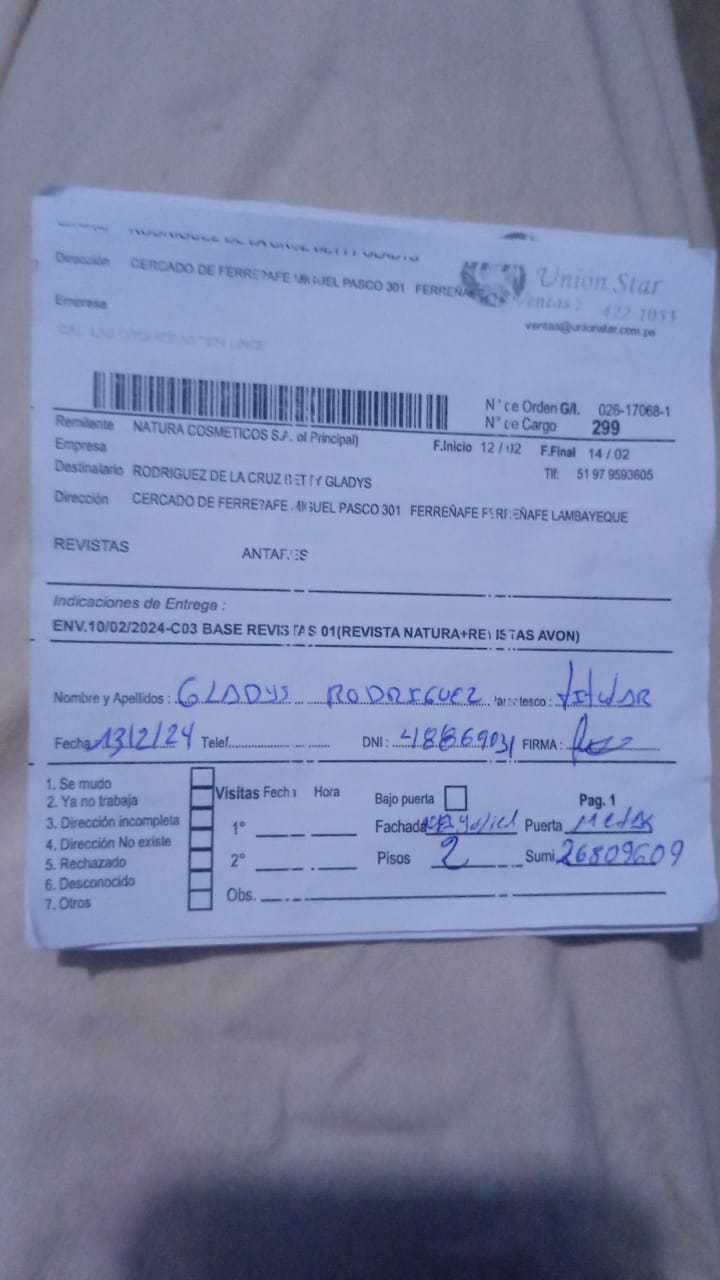 RODRIGUEZ DE LA CRUZ BETTY GLADYS
Dirección CERCADO DE FERREÑAFE MIGUEL PASCO 301 FERREÑA
Union Star
Ventas : 422-1053
Empresa
ventas@unionstar.com.pe
N° de Orden G/I. 026-17068-1
N° de Cargo 299
Remitente NATURA COSMETICOS S.A. ol Principal)
F.Inicio 12 / 02 F.Final 14 / 02
Empresa
Tlf: 51 97 9593605
Destinatario RODRIGUEZ DE LA CRUZ BETTY GLADYS
Dirección CERCADO DE FERREÑAFE MIGUEL PASCO 301 FERREÑAFE FERREÑAFE LAMBAYEQUE
REVISTAS ANTARES
Indicaciones de Entrega :
ENV.10/02/2024-C03 BASE REVISTAS 01(REVISTA NATURA+REVISTAS AVON)
Nombre y Apellidos : GLADYS RODRIGUEZ Parentesco : titular
Fecha 13/2/24 Telef. DNI : FIRMA :
1. Se mudo
2. Ya no trabaja
3. Dirección incompleta
4. Dirección No existe
5. Rechazado
6. Desconocido
7. Otros
Visitas Fecha Hora
1°
2°
Obs.
Bajo puerta Pag. 1
Fachada Puerta Metal
Pisos 2 Sumi. 26809609